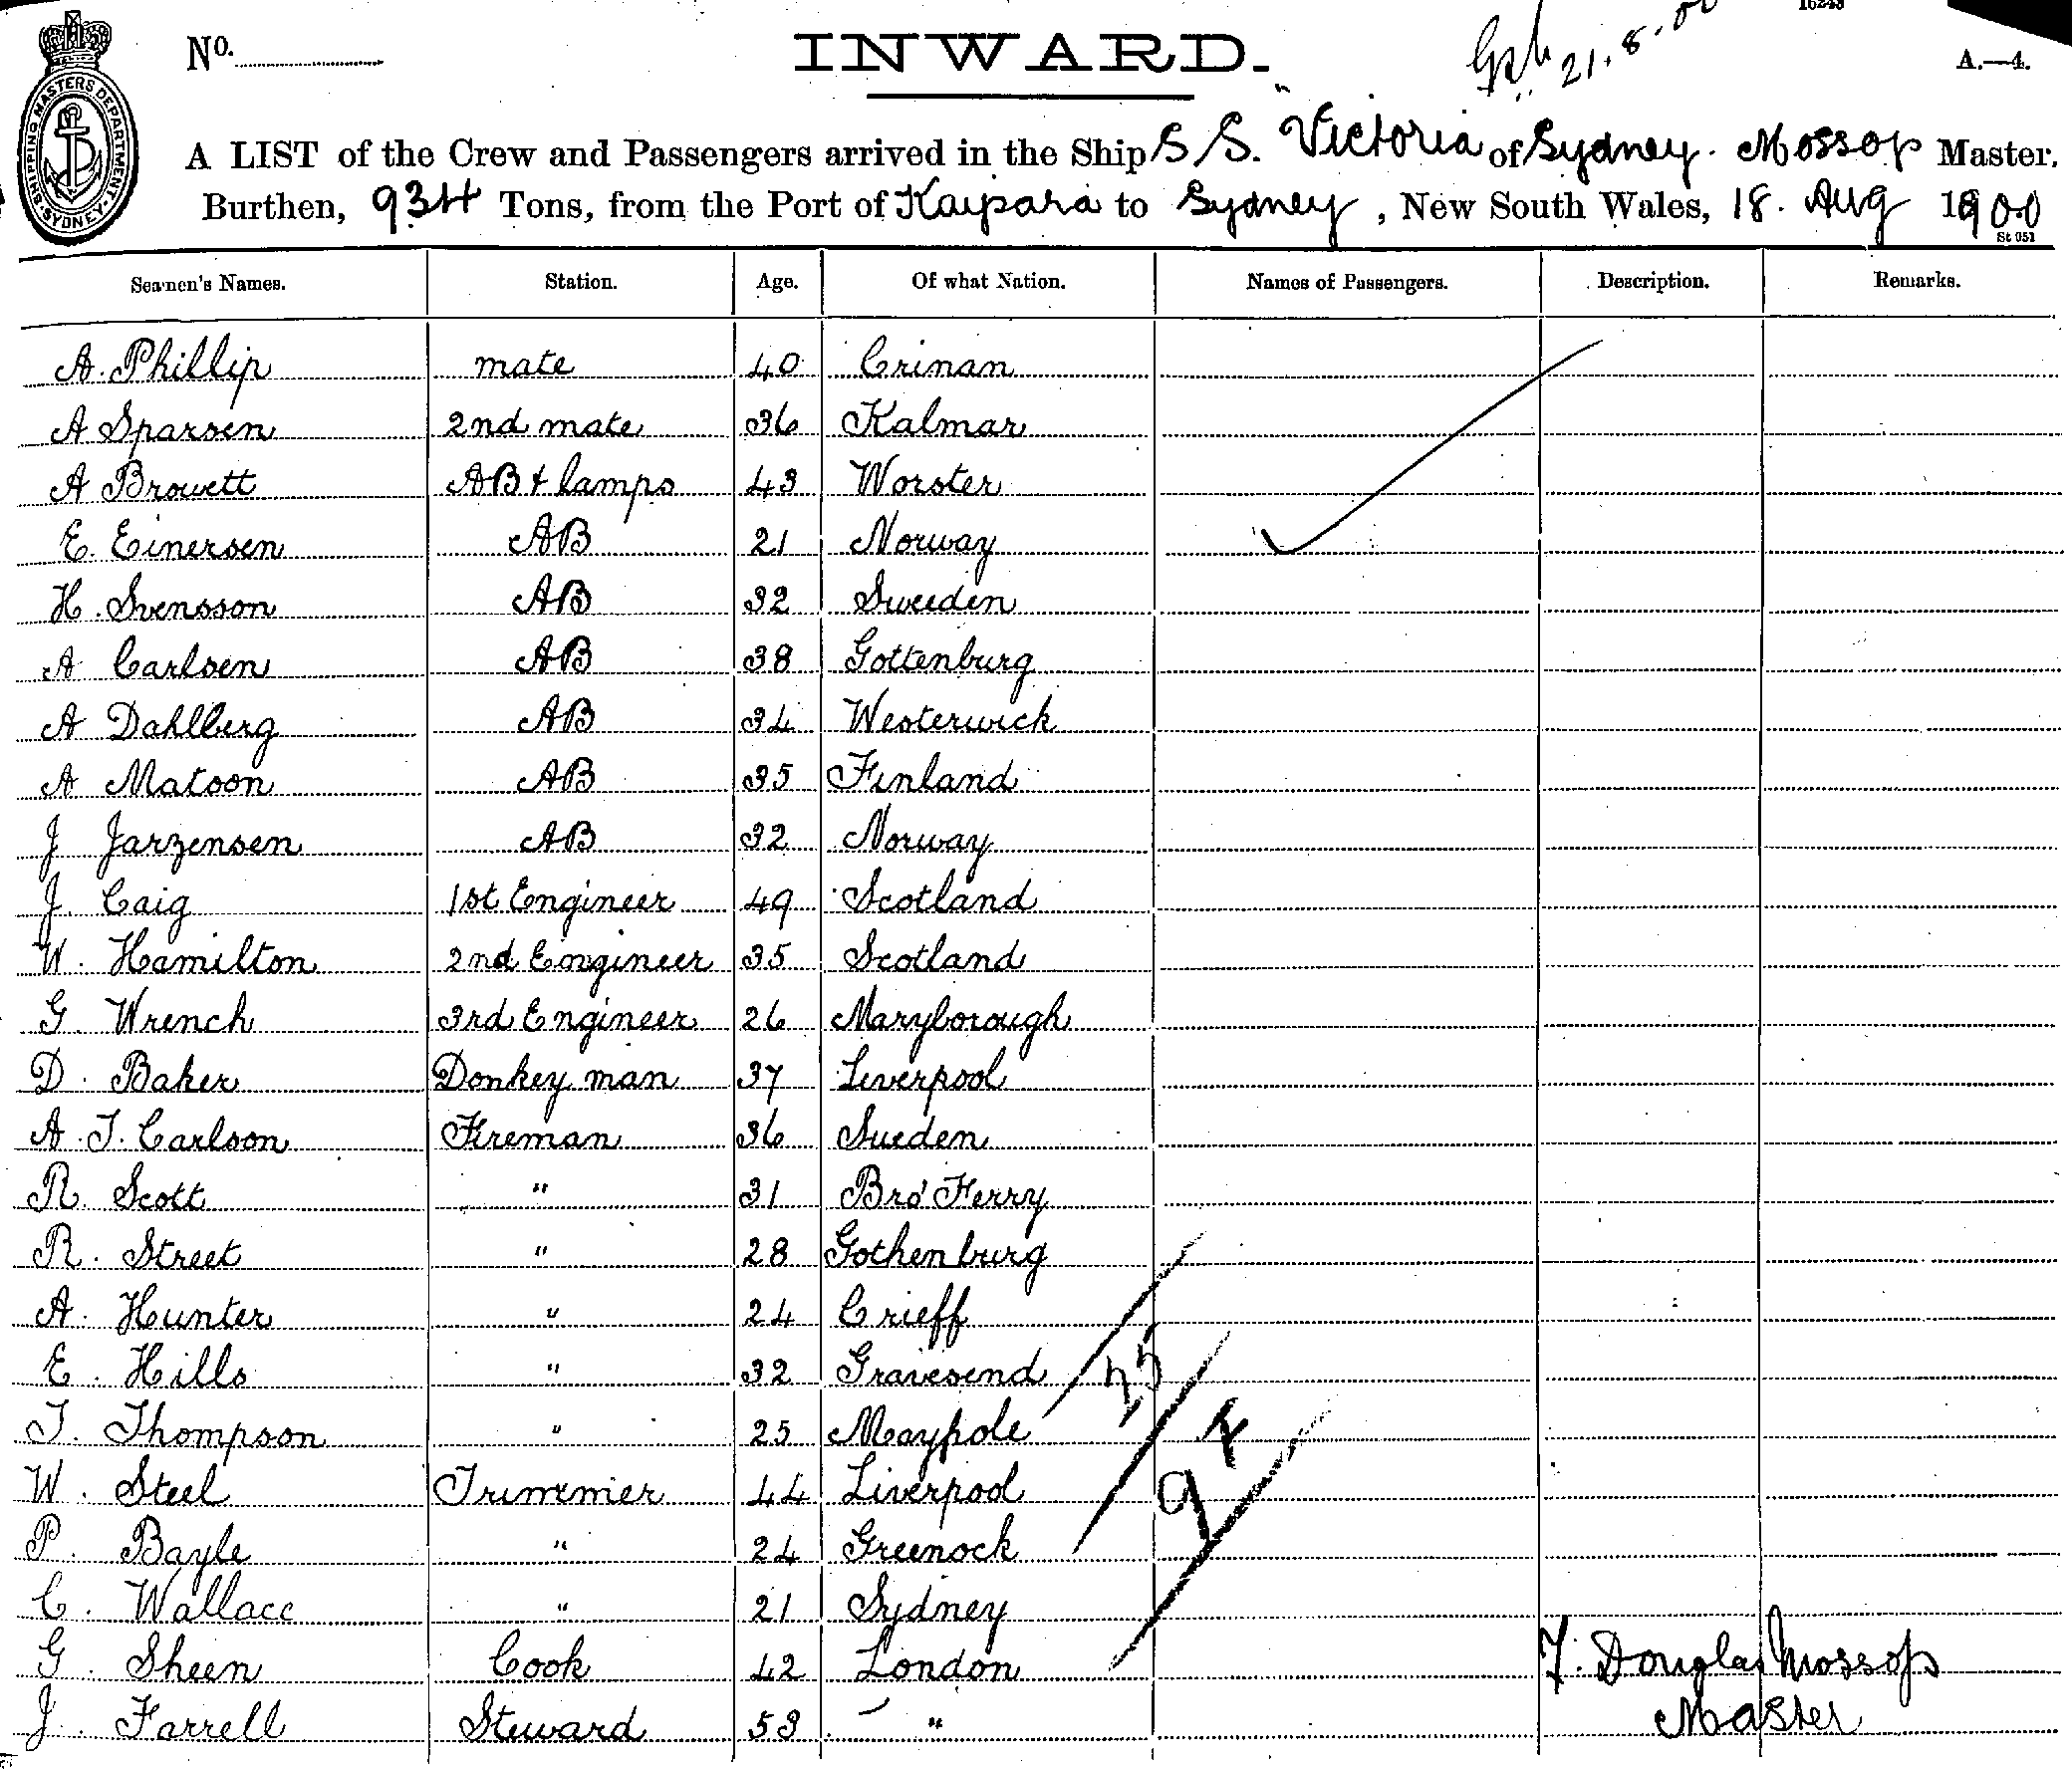 16243
No. INWARD. 21.8.00 A.—4.
SHIPPING MASTERS DEPARTMENT. SYDNEY.
A LIST of the Crew and Passengers arrived in the Ship S S. "Victoria" of Sydney. Mossop Master.
Burthen, 934 Tons, from the Port of Kaipara to Sydney, New South Wales, 18. Aug 1900
St 051
Seamen's Names. Station. Age. Of what Nation. Names of Passengers. Description. Remarks.
A. Phillip mate 40 Crinan
A Sparsen 2nd mate 36 Kalmar
A Browett AB + lamps 43 Worster
E. Einersen AB 21 Norway
H. Svensson AB 32 Sweeden
A Carlsen AB 38 Gottenburg
A Dahlberg AB 34 Westerwick
A Matoon AB 35 Finland
J Jarzensen AB 32 Norway
J. Caig 1st Engineer 49 Scotland
W. Hamilton 2nd Engineer 35 Scotland
G. Wrench 3rd Engineer 26 Maryborough
D. Baker Donkey man 37 Liverpool
A. J. Carlson Fireman 36 Sueden
R. Scott " 31 Bro' Ferry
R. Street " 28 Gothenburg
A. Hunter " 24 Crieff
E. Hills " 32 Gravesend 25
T. Thompson " 25 Maypole
W. Steel Trimmier 44 Liverpool
P. Bayle " 24 Greenock
C. Wallace " 21 Sydney
G. Sheen Cook 42 London F. Douglas Mossop
J. Farrell Steward 53 " Master